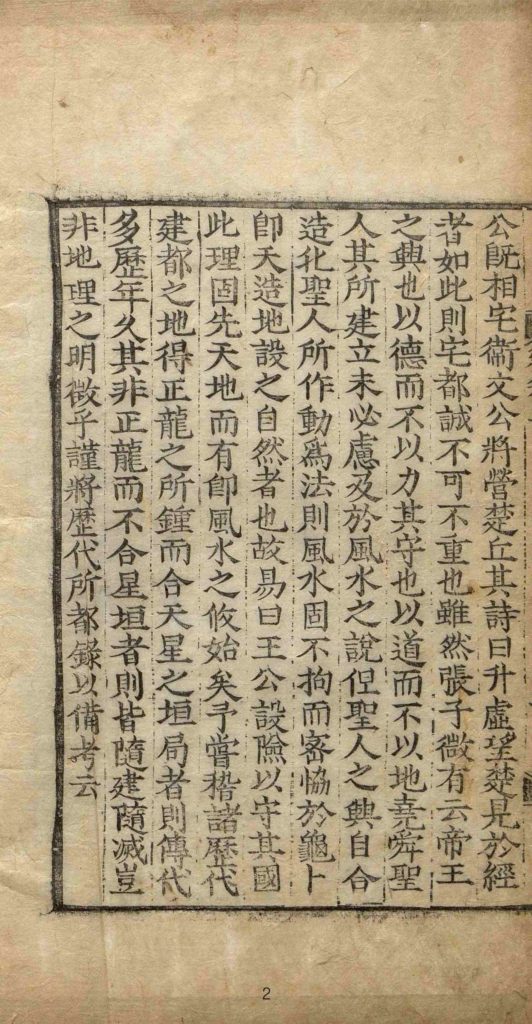 公旣相宅衛文公將營楚丘其詩曰升虛望楚見於經
者如此則宅都誠不可不重也雖然張子微有云帝王
之興也以德而不以力其守也以道而不以地堯舜聖
人其所建立未必慮及於風水之說但聖人之興自合
造化聖人所作動爲法則風水固不拘而審恊於龜卜
卽天造地設之自然者也故易曰王公設險以守其國
此理固先天地而有卽風水之攸始矣予嘗稽諸歷代
建都之地得正龍之所鍾而合天星之垣局者則傳代
多歷年久其非正龍而不合星垣者則皆隨建隨滅豈
非地理之明徵乎謹將歷代所都錄以備考云
2